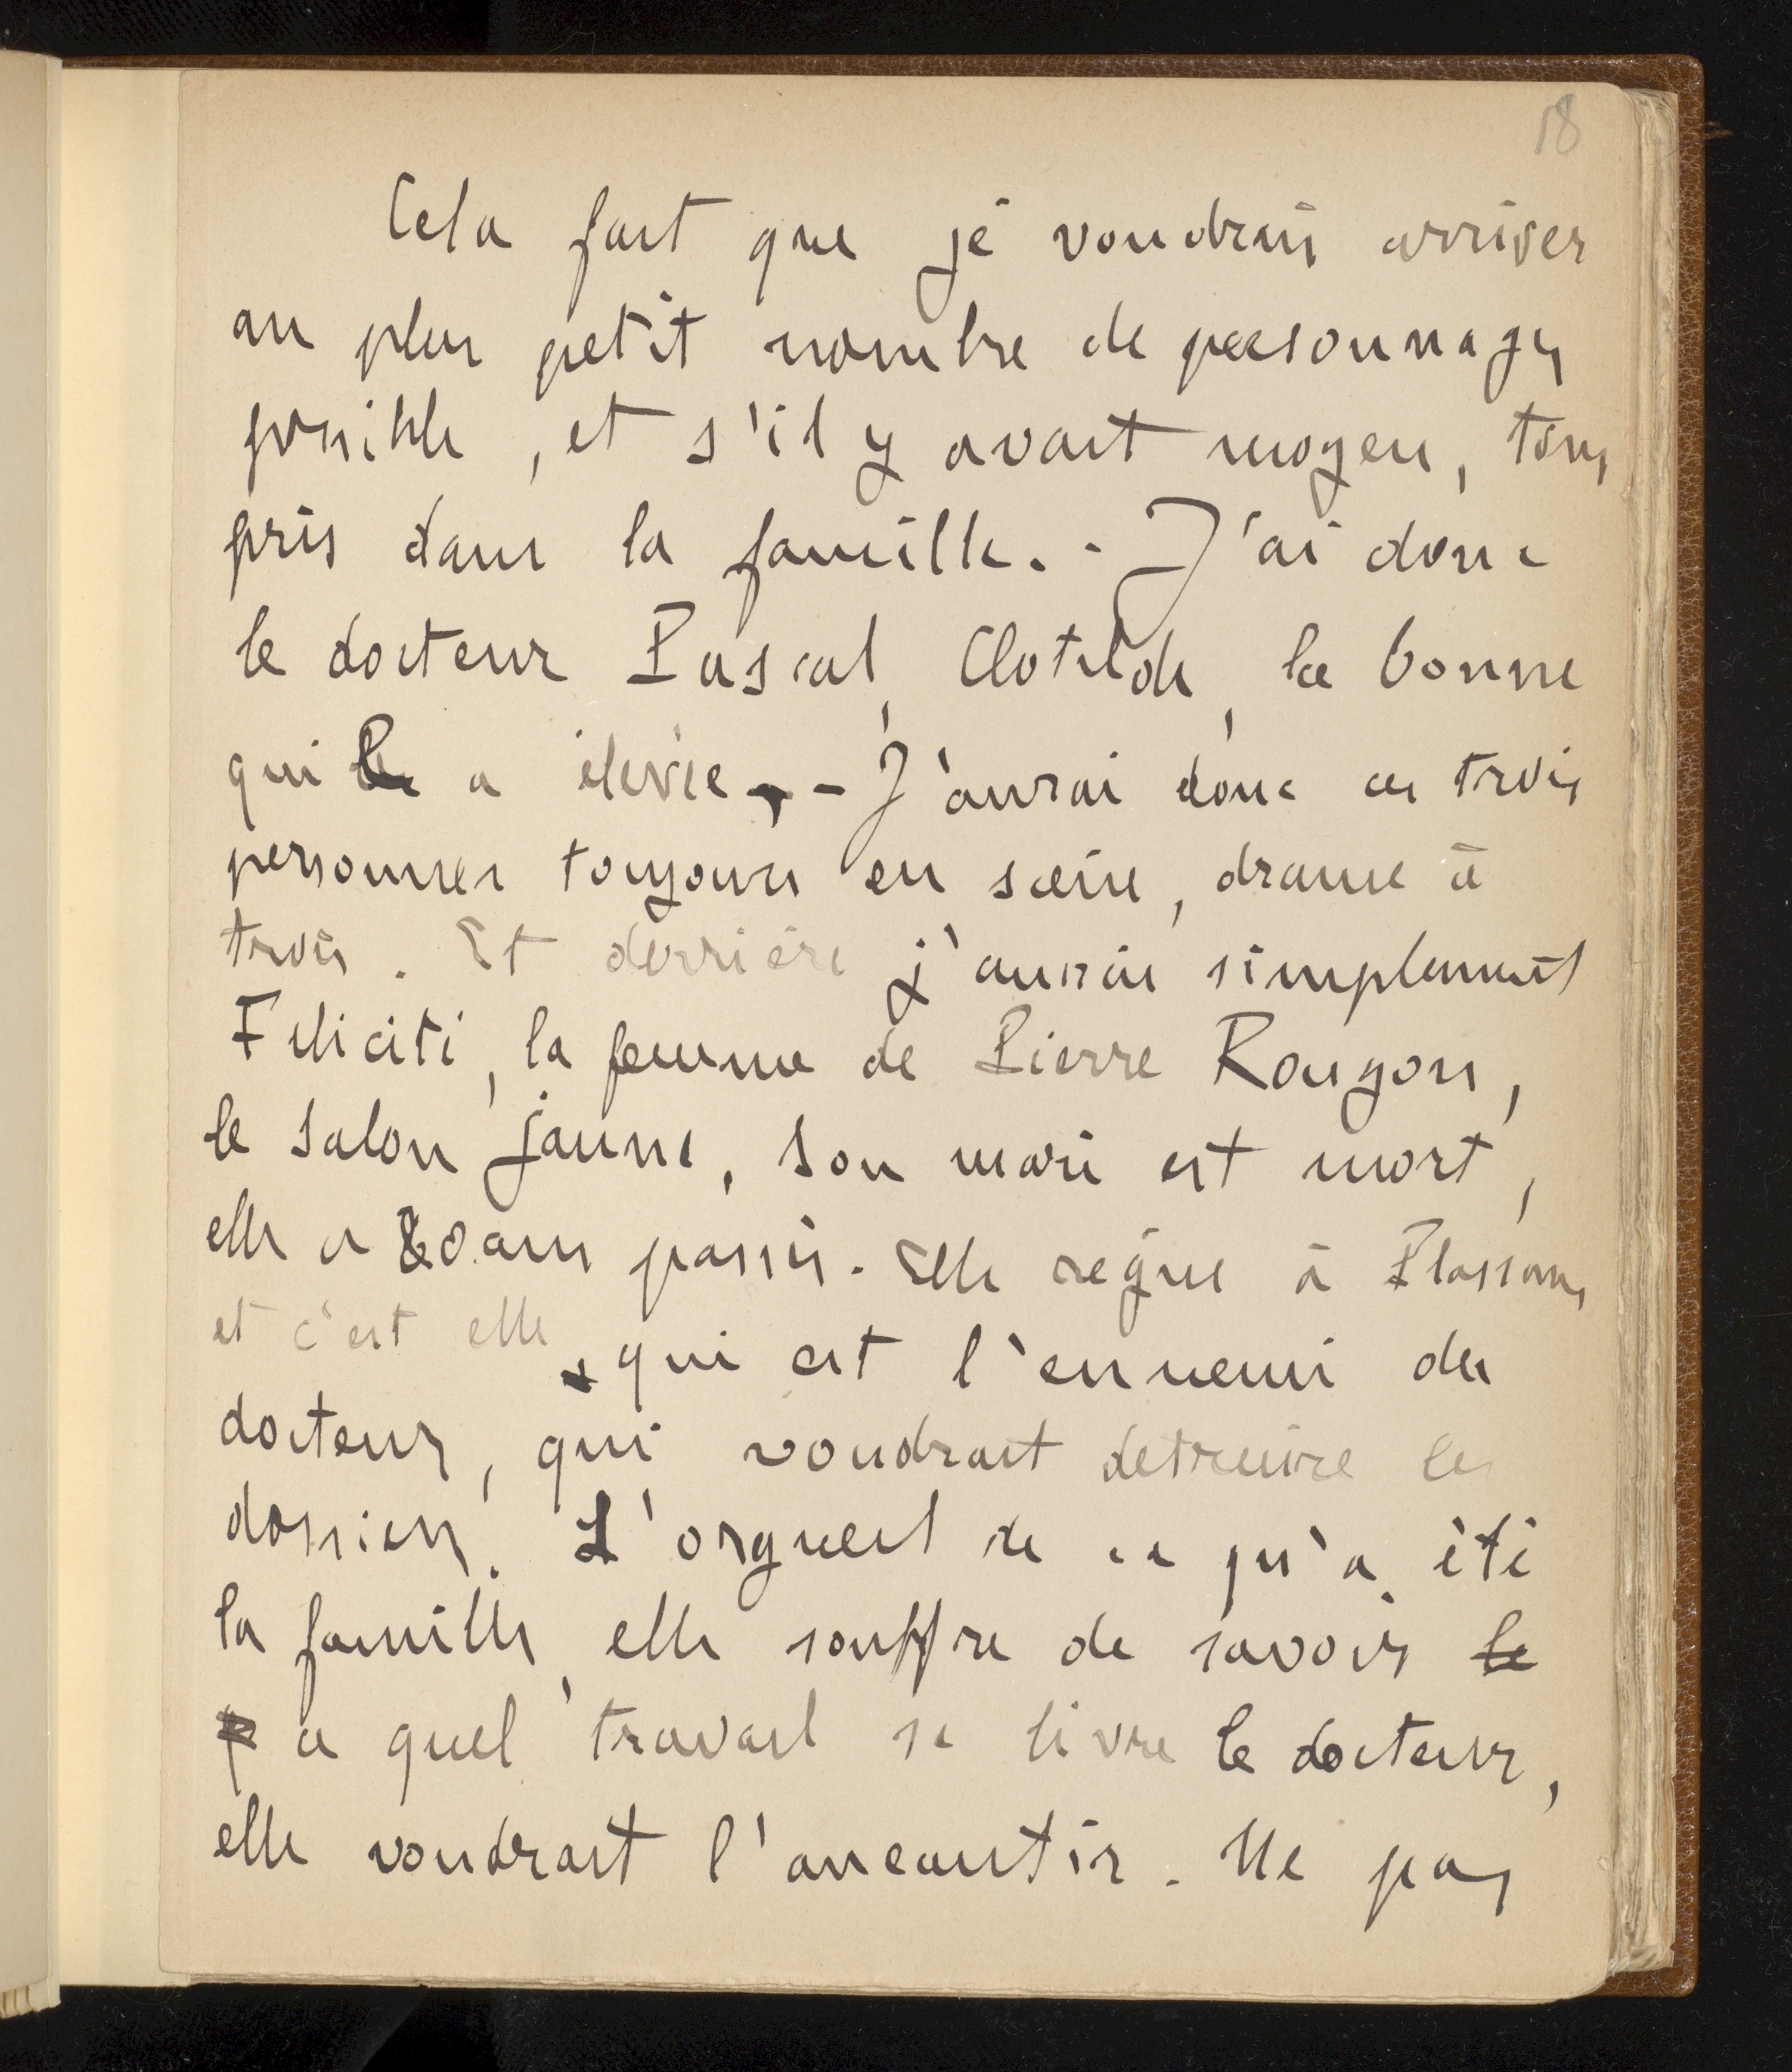 18
Cela fait que je voudrais arriver
au plus petit nombre de personnages
possible, et s'il y avait moyen, tous
pris dans la famille. - J'ai donc
le docteur Pascal, Clotilde, la bonne
qui le a élevée, - J'aurai donc ces trois
personnes toujours en scène, drame à
trois. Et derrière j'aurais simplement
Félicité, la femme de Pierre Rougon,
le salon jaune, son mari est mort,
elle a 80 ans passés. Elle règne à Plassans,
et c'est elle qui est l'ennemi du
docteur, qui voudrait détruire les
dossiers. L'orgueil de ce qu'a été
la famille, elle souffre de savoir le
a quel travail se livre le docteur,
elle voudrait l'anéantir. Ne pas